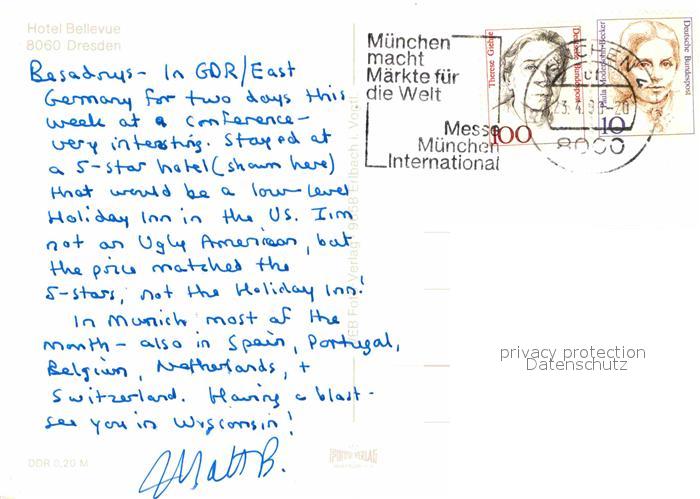 Hotel Bellevue
8060 Dresden
Basadrys - In GDR/East
Germany for two days this
week at a conference -
very interesting. Stayed at
a 5-star hotel (shown here)
that would be a low-level
Holiday Inn in the US. I'm
not an Ugly American, but
the price matched the
5-stars, not the Holiday Inn!
In Munich most of the
month - also in Spain, Portugal,
Belgium, Netherlands, +
Switzerland. Having a blast -
see you in Wisconsin!
Matt B.
DDR 0,20 M
München
macht
Märkte für
die Welt
Messe
München
International
Therese Giehse
Deutsche Bundespost
100
Paula Modersohn-Becker
Deutsche Bundespost
10
8000
privacy protection
Datenschutz